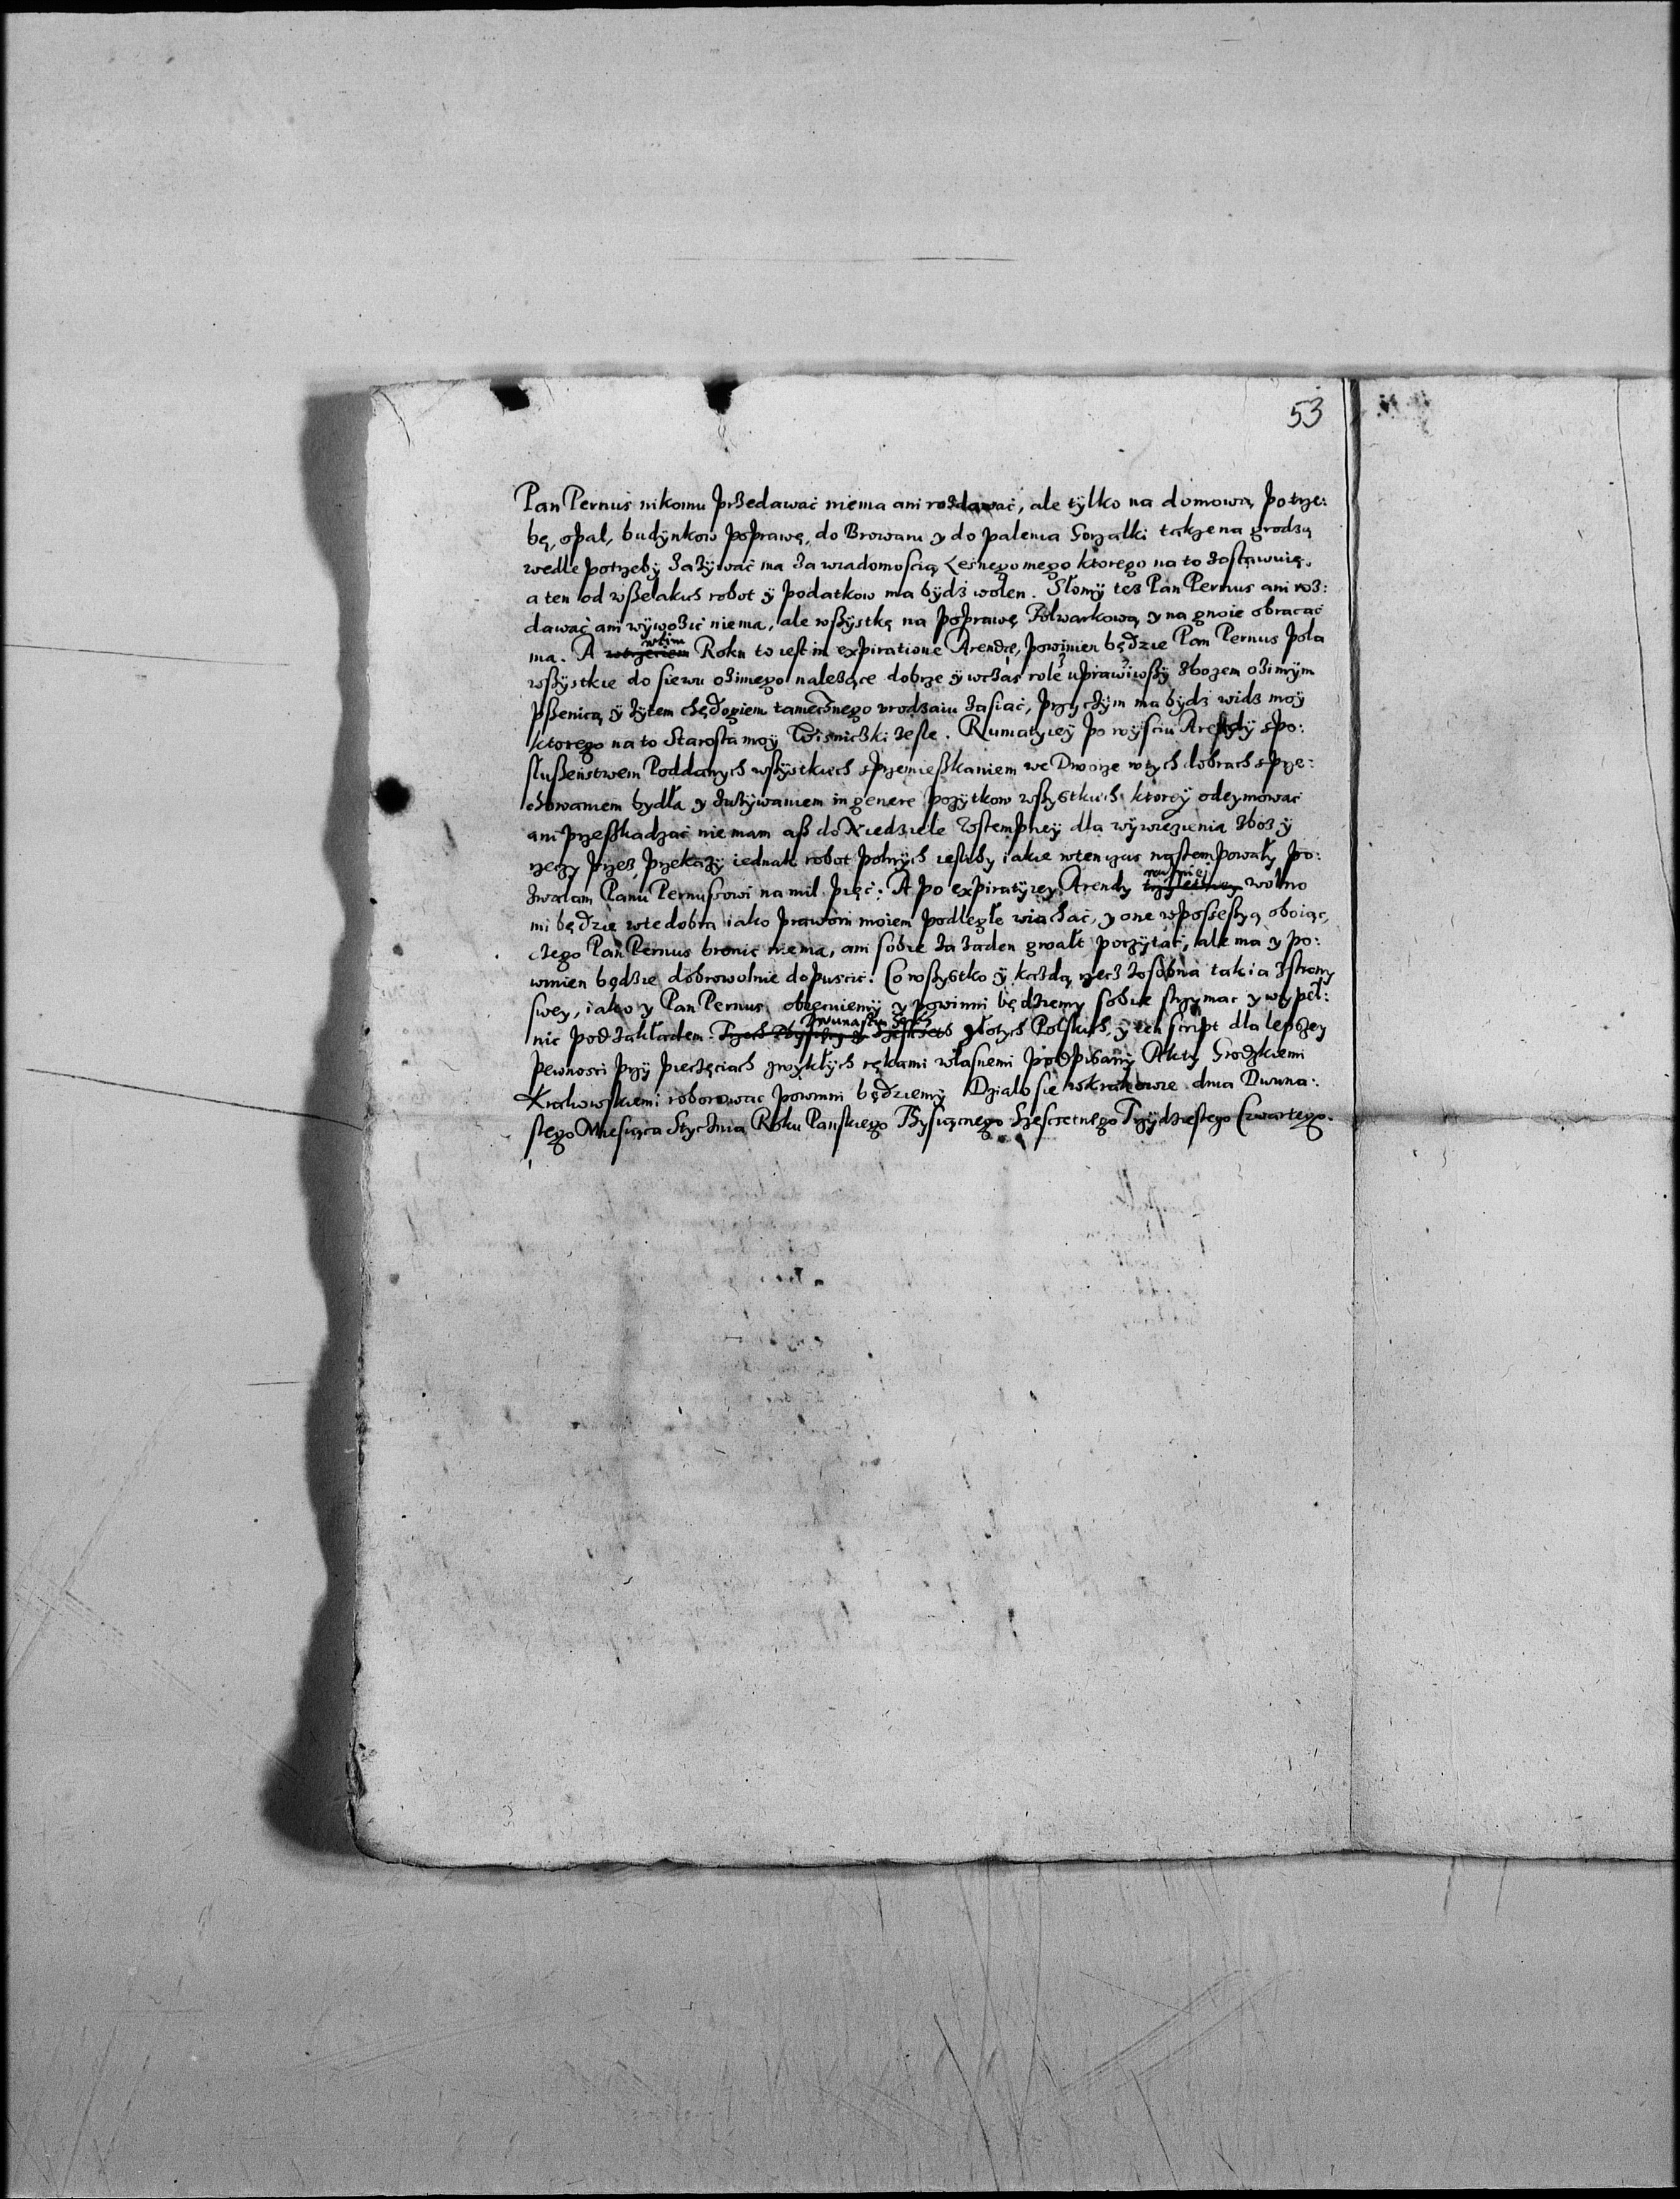 53
Pan Pernus nikomu przedawać niema ani rozdawać, ale tÿlko na domową potrze:
bę, opał, budÿnkow poprawę, do Browaru y do palenia Gorzałki takze na grodzą
wedle potrzebÿ zazÿwać ma za wiadomoscią Lesnego mego ktorego na to zostawuię,
a ten od wszelakich robot ÿ podatkow ma bÿdz wolen. Słomÿ tez Pan Pernus ani roz:
dawać ani wÿwozić niema, ale wszÿstkę na poprawę Folwarkową y na gnoie obracać
ma. A wtrzeciem wtim Roku to iest in expiratione Arendæ, powinien będzie Pan Pernus pola
wszÿstkie do siewu ozimego nalezące dobrze ÿ wczas role uprawiwszÿ zbozem ozimÿm
pszenicą ÿ zÿtem chędogiem tamecznego urodzaiu zasiać, przÿ czÿm ma bÿdz widz moÿ
ktorego na to Starosta moÿ Wisniczki zesle. Rumatÿieÿ po wÿsciu Arendÿ s po:
słuszeństwem Poddanÿch wszÿstkich s przemieszkaniem we Dworze w tÿch dobrach s prze:
chowaniem bydła y zazÿwaniem in genere pozytkow wszÿstkich ktoreÿ odeymować
ani przeszkadzać nie mam asz do Niedziele Wstempneÿ dla wÿwiezienia zboz ÿ
rzeczy przez przekazÿ iednak robot polnÿch iesliby iakie wtenczas następowałÿ po:
zwalam Panu Pernussowi na mil pięć. A po expiratÿiey Arendy trzÿletniey wolno
mi będzie w te dobra iako prawom moiem podległe wiachać, y one w possessyą obiąć,
czego Pan Pernus bronić niema, ani sobie za zaden gwałt poczÿtać, ale ma y po:
winien będzie dobrowolnie dopuscić. Co wszystko ÿ kazdą rzecz zosobna tak ia z strony
swey, iako y Pan Pernus obiecuiemÿ y powinni będziemy sobie strzymac y wypeł:
nić pod zakładem złotÿch Polskich, ÿ ten script dla lepszey
pewnosci przÿ pieczęciach zwÿkłÿch rękami własnemi podpisanÿ Aktÿ Grodzkiemi
Krakowskiemi roborować powinni będziemÿ Działo się w Krakowie dnia Dwuna:
stego Miesiąca Stycznia Roku Panskiego Tysiącnego Szescsetnego Trzÿdziestego Czwartego.